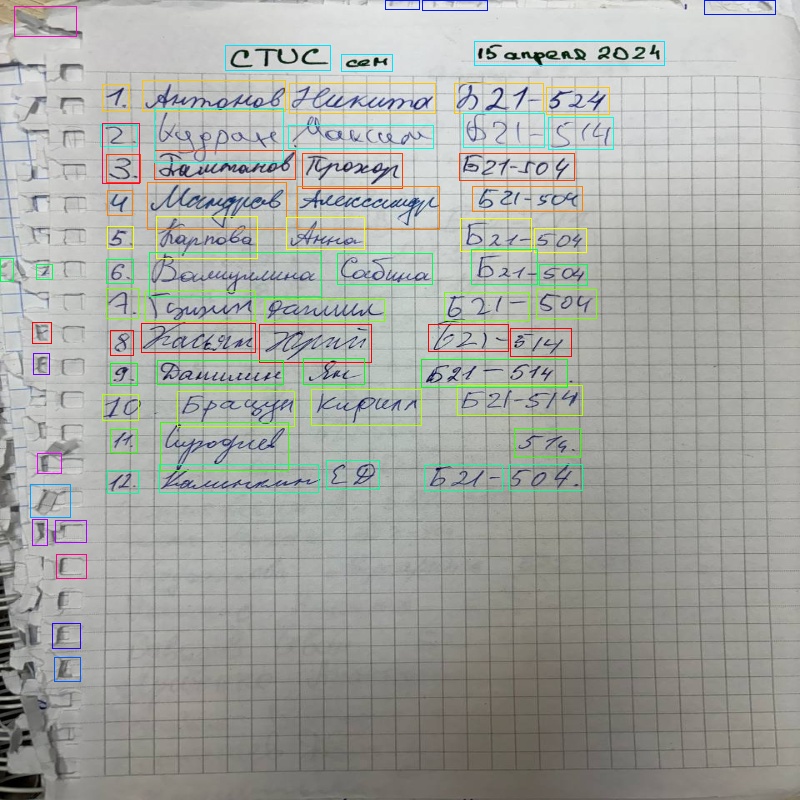 СТИС сем 15 апреля 2024
1. Антонов Никита Б21-524
2. Кудран Максим Б21-514
3. Прохор Б21-504
4 Мандров Александр Б21-504
5. Карпова Анна Б21-504
6. Валиуллина Сабина Б21-504
7. Даниил Б21-504
8 Касьян Юрий Б21-514
9. Данилин Ян Б21-514.
10. Брацун Кирилл Б21-514
11. 514.
12. Калинкин ЕД Б21-504.